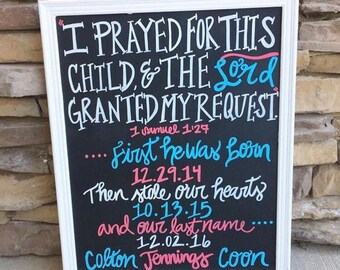 "I PRAYED FOR THIS
CHILD, & THE Lord
GRANTED MY REQUEST."
1 Samuel 1:27
.... First he was born
12.29.14
Then stole our hearts
10.13.15
and our last name....
12.02.16
Colton Jennings Coon